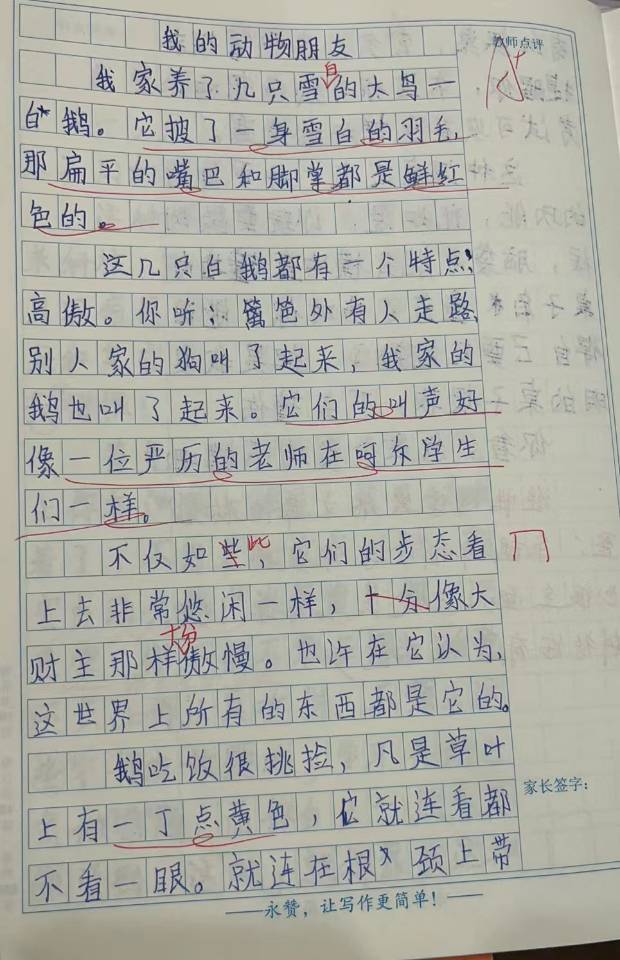 我的动物朋友
教师点评
A+
我家养了九只雪白的大鸟一
白鹅。它披了一身雪白的羽毛,
那扁平的嘴巴和脚掌都是鲜红
色的。
这几只白鹅都有一个特点:
高傲。你听:篱笆外有人走路,
别人家的狗叫了起来,我家的
鹅也叫了起来。它们的叫声好
像一位严历的老师在呵斥学生
们一样。
不仅如此,它们的步态看
上去非常悠闲一样,十分像大
财主那样十分傲慢。也许在它认为,
这世界上所有的东西都是它的。
鹅吃饭很挑捡,凡是草叶
上有一丁点黄色,它就连看都
家长签字:
不看一眼。就连在根颈上带
永赞,让写作更简单!